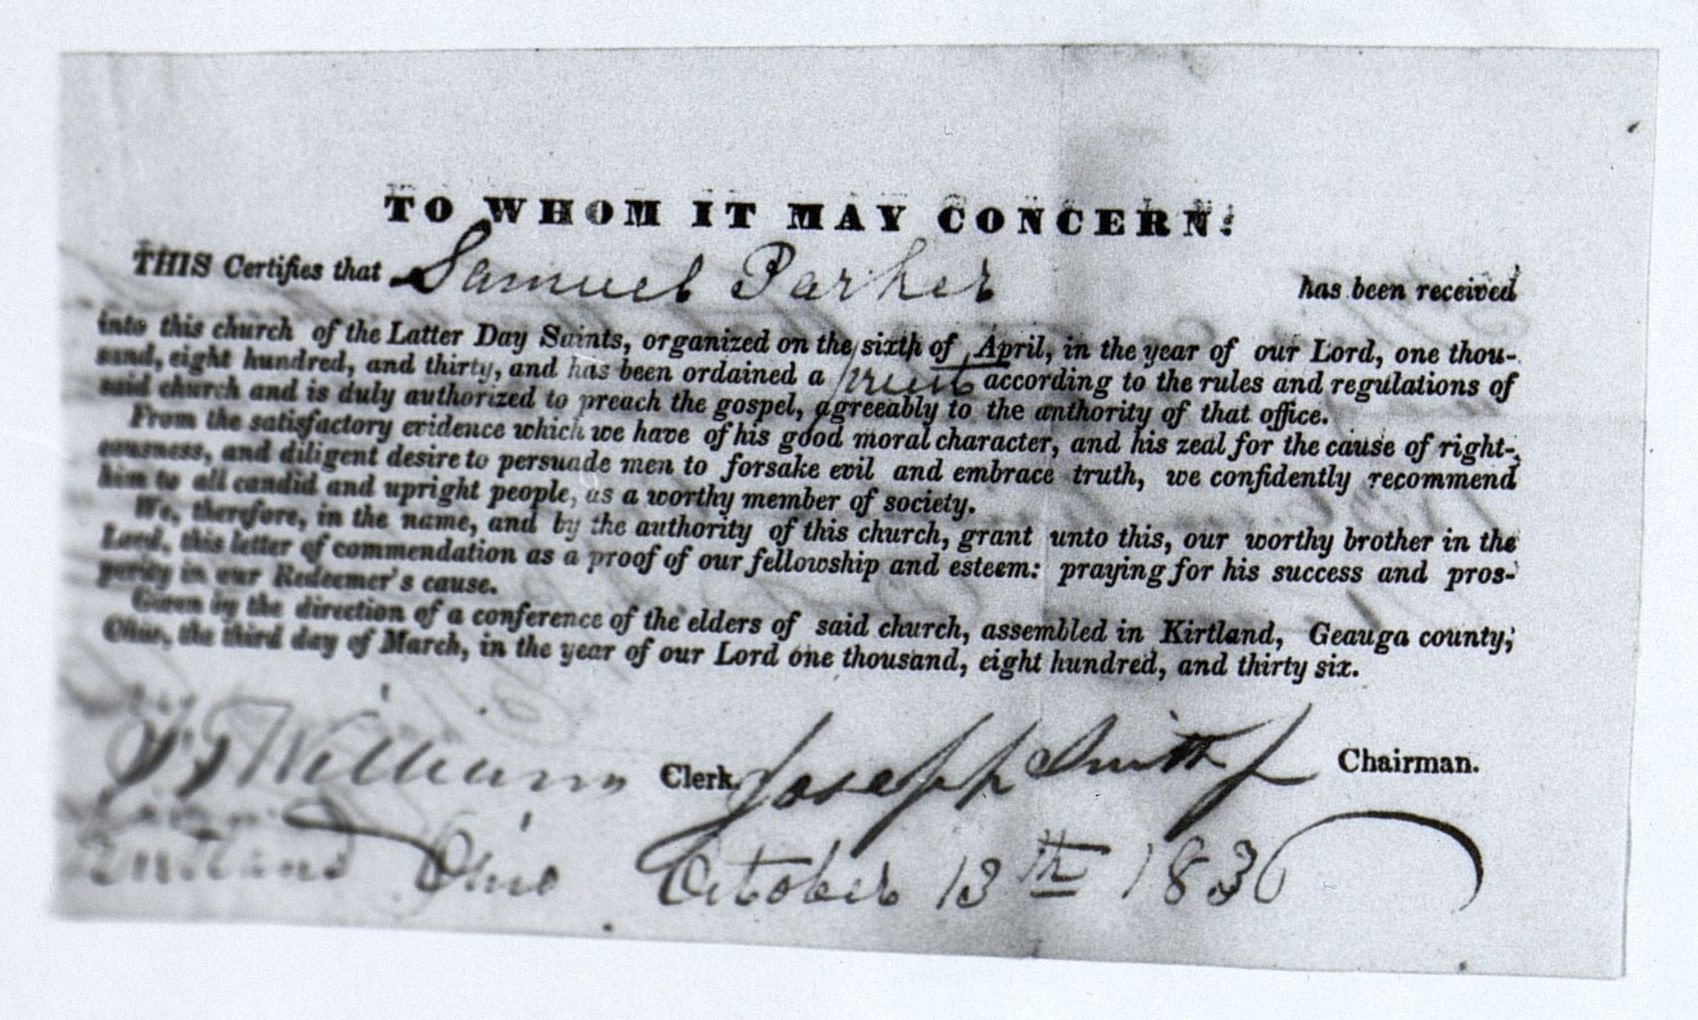 TO WHOM IT MAY CONCERN:
THIS Certifies that Samuel Parker has been received
into this church of the Latter Day Saints, organized on the sixth of April, in the year of our Lord, one thou-
sand, eight hundred, and thirty, and has been ordained a priest according to the rules and regulations of
said church and is duly authorized to preach the gospel, agreeably to the authority of that office.
From the satisfactory evidence which we have of his good moral character, and his zeal for the cause of right-
eousness, and diligent desire to persuade men to forsake evil and embrace truth, we confidently recommend
him to all candid and upright people, as a worthy member of society.
We, therefore, in the name, and by the authority of this church, grant unto this, our worthy brother in the
Lord, this letter of commendation as a proof of our fellowship and esteem: praying for his success and pros-
perity in our Redeemer's cause.
Given by the direction of a conference of the elders of said church, assembled in Kirtland, Geauga county,
Ohio, the third day of March, in the year of our Lord one thousand, eight hundred, and thirty six.
F G Williams Clerk. Joseph Smith Jr Chairman.
Kirtland Ohio October 13th 1836